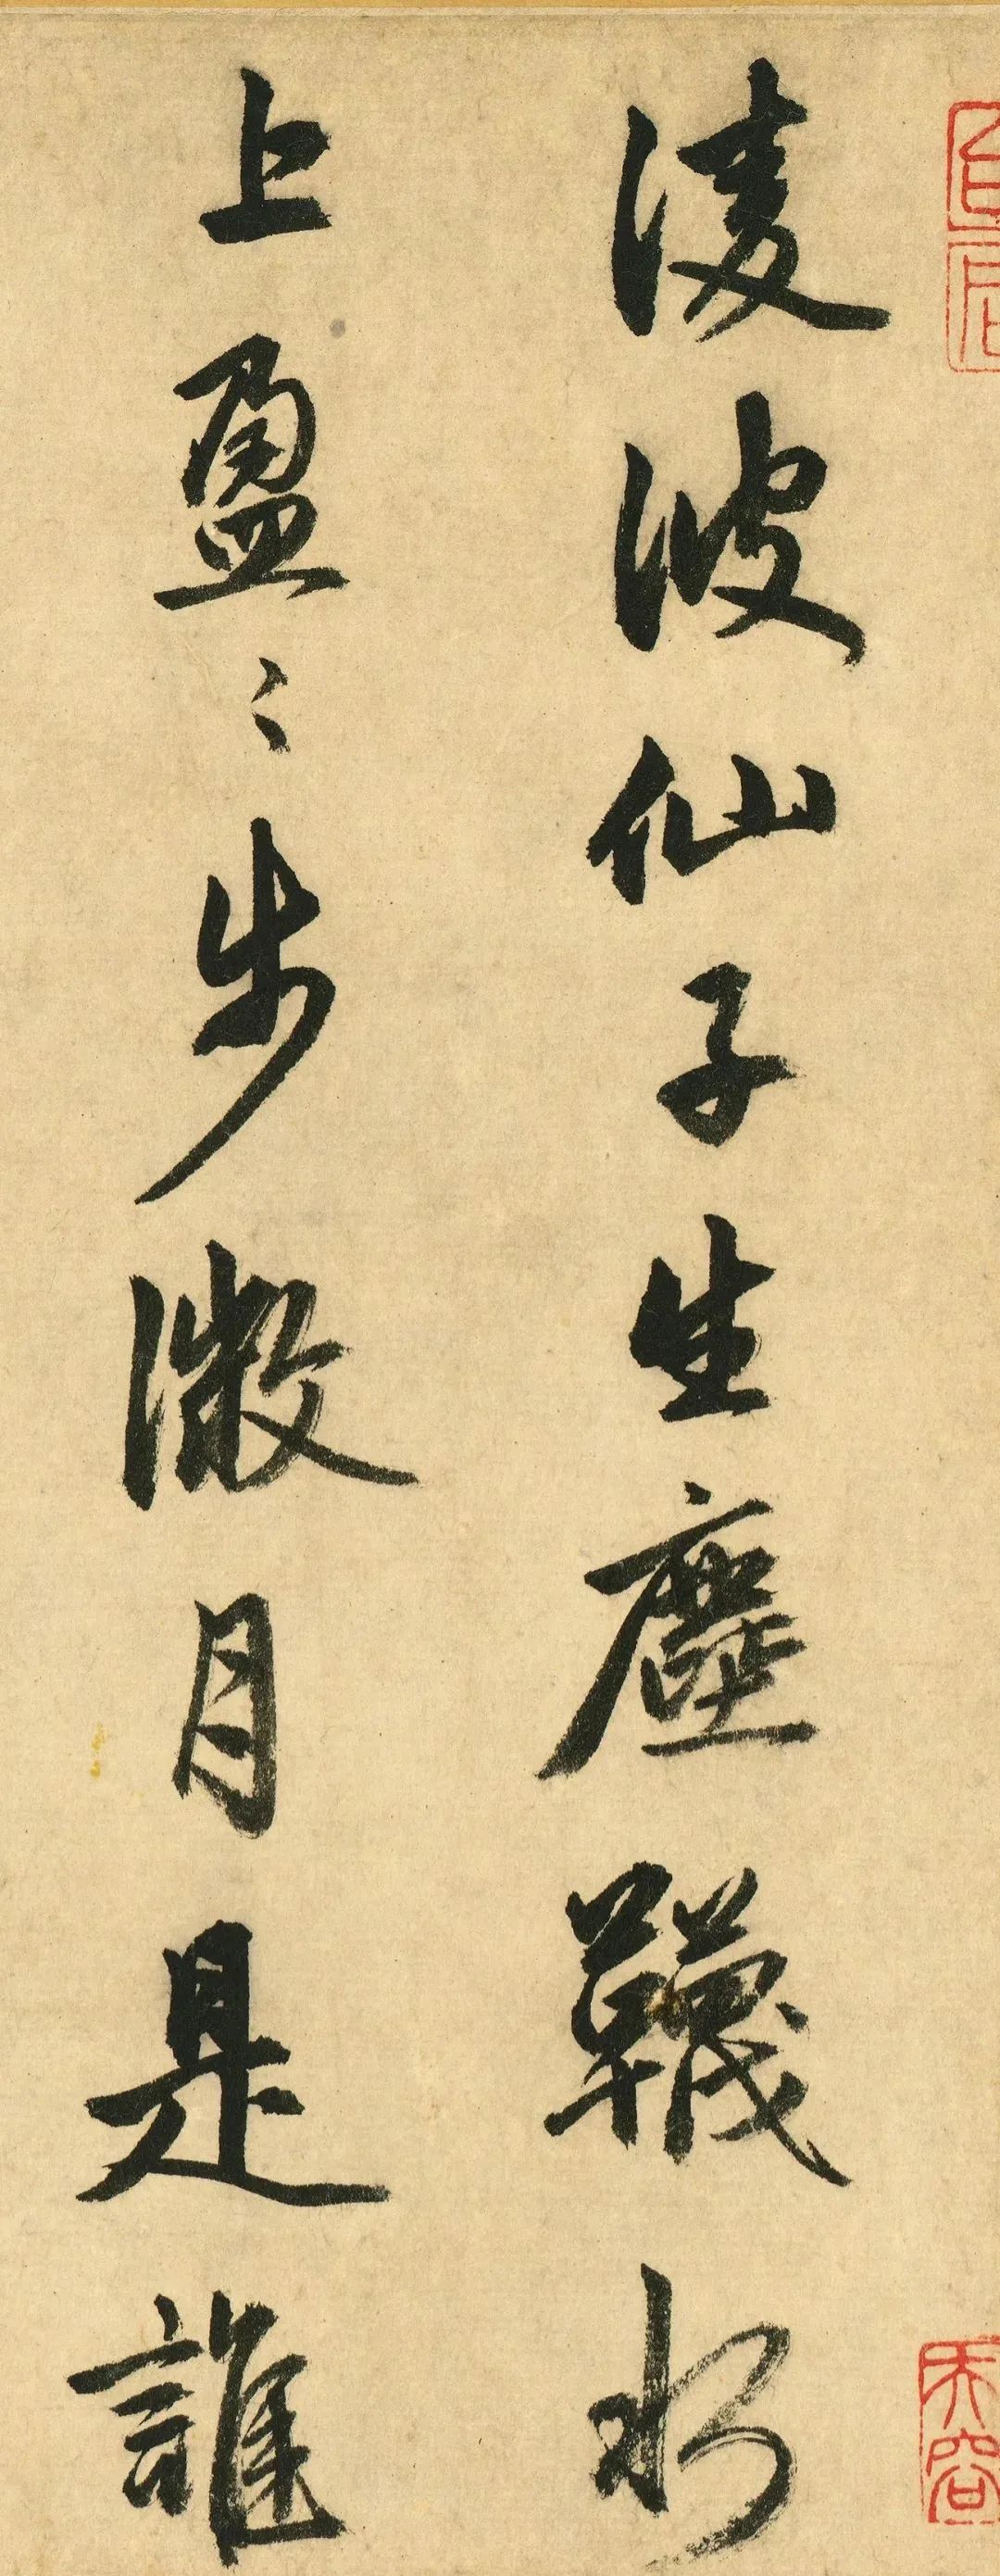 淩波仙子生塵韈水
上盈〻步微月是誰